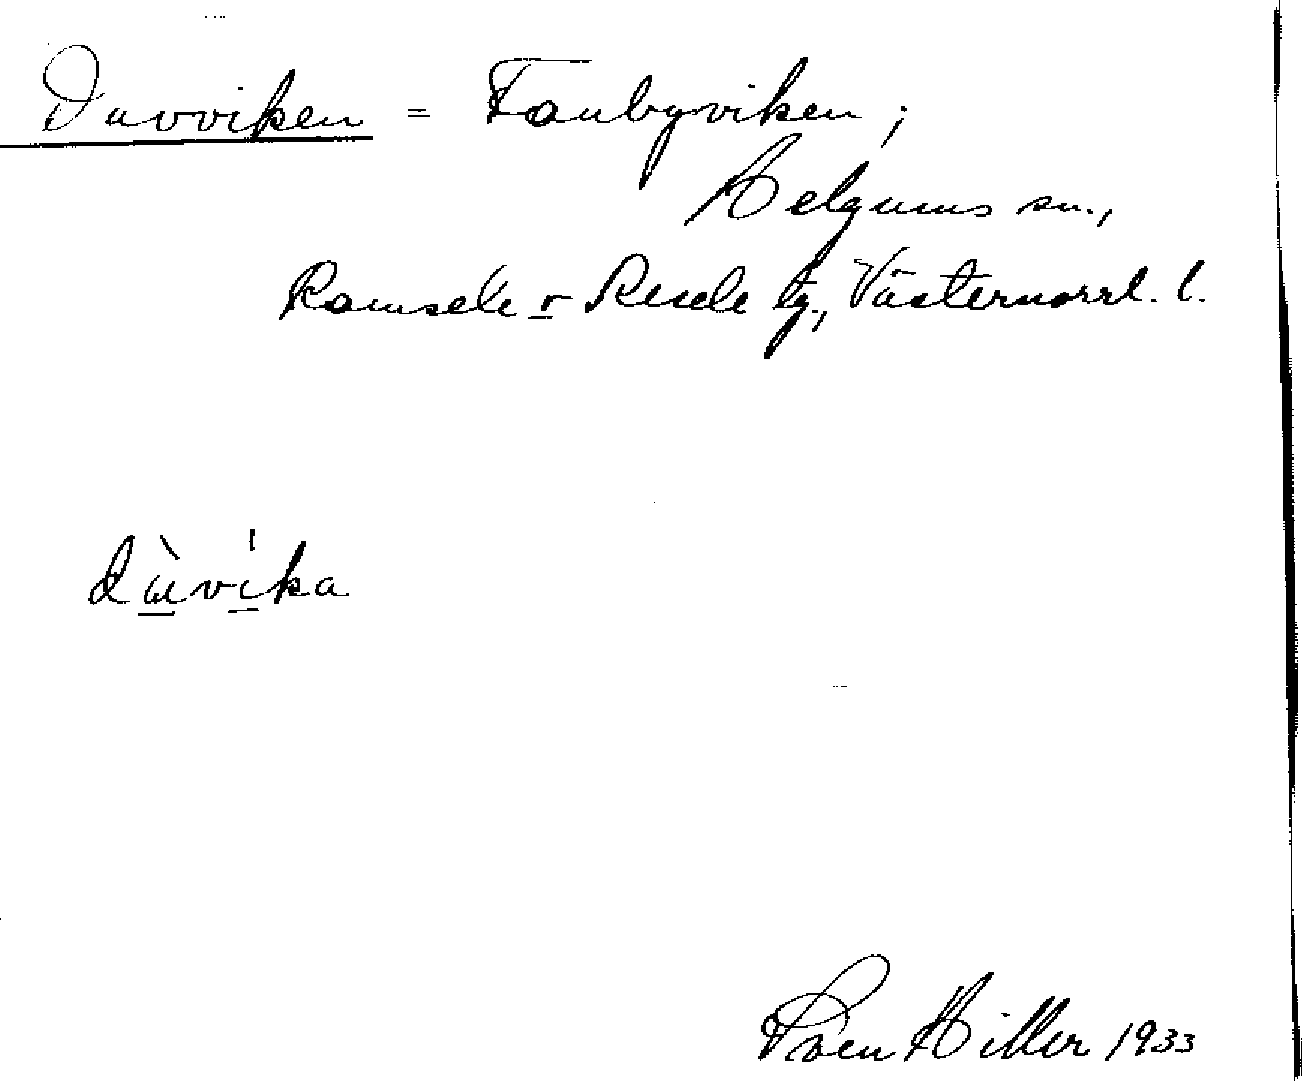 Duvviken = Fanbyviken;
Helgums sn.,
Ramsele o Resele tg., Västernorrl. l.
dùvíka
Sven Hiller 1933